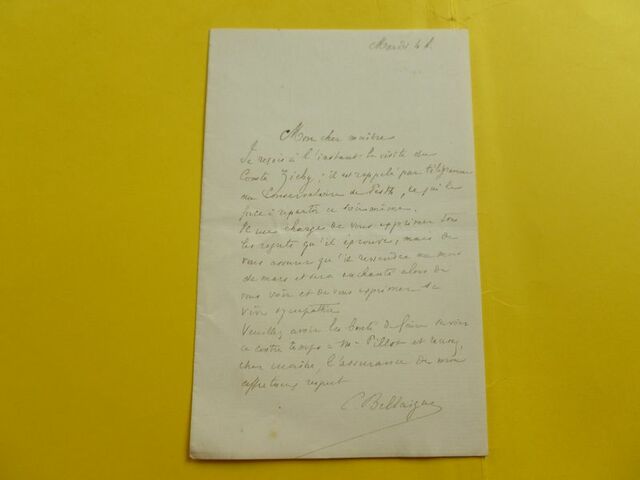 Mardi 4 h.
Mon cher maître
Je reçois à l'instant la visite du
Comte Zichy; il est rappelé par télégramme
au Conservatoire de Pesth, ce qui le
force à repartir ce soir même.
Il me charge de vous exprimer tous
les regrets qu'il éprouve, mais de
vous assurer qu'il reviendra au mois
de mars et sera enchanté alors de
vous voir et de vous exprimer sa
vive sympathie
Veuillez avoir la bonté de faire savoir
ce contre temps à Mr Pillot et croyez,
cher maître, l'assurance de mon
affectueux respect
C. Bellaigue